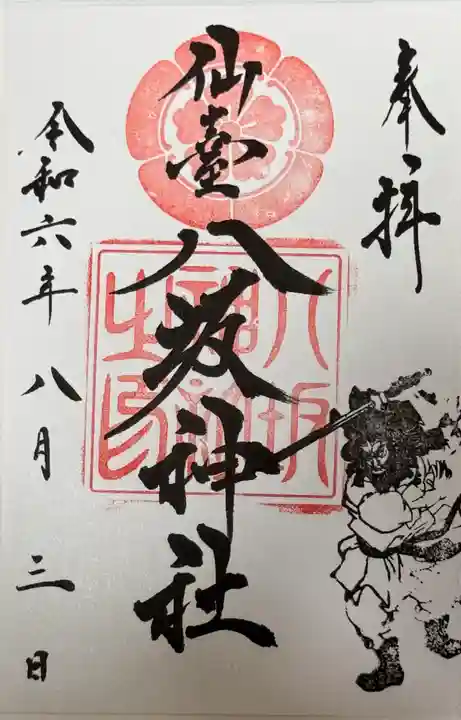 奉拝
仙臺
八坂神社
八坂神社之印
令和六年八月三日